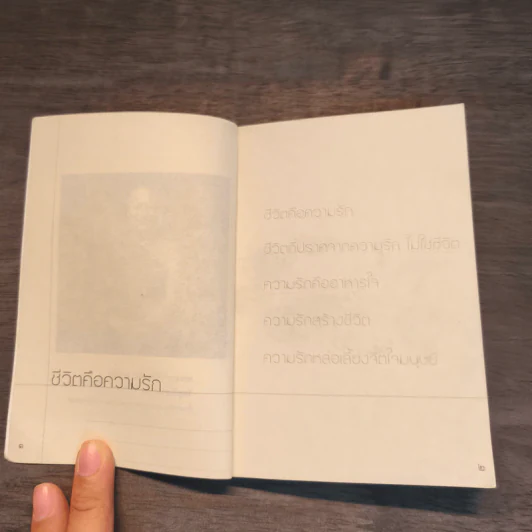 ชีวิตคือความรัก
๑
ชีวิตคือความรัก
ชีวิตที่ปราศจากความรัก ไม่ใช่ชีวิต
ความรักคืออาหารใจ
ความรักสร้างชีวิต
ความรักหล่อเลี้ยงจิตใจมนุษย์
๒